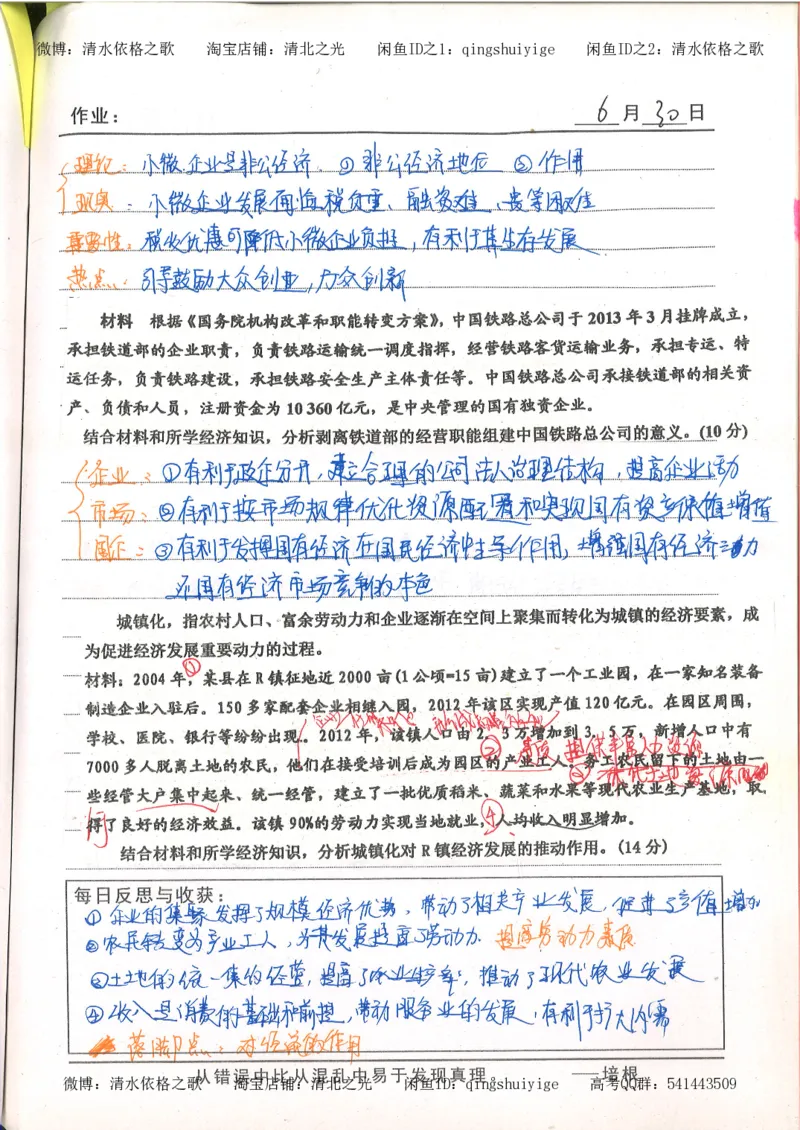 微博：清水依格之歌 淘宝店铺：清北之光 闲鱼ID之1：qingshuiyige 闲鱼ID之2：清水依格之歌
作业： 6月30日
理论：小微企业是非公经济 ①非公经济地位 ②作用
现实：小微企业发展面临税负重、融资难、贵等困难
重要性：税收优惠可降低小微企业负担，有利于其生存发展
热点：引导鼓励大众创业，万众创新
材料 根据《国务院机构改革和职能转变方案》，中国铁路总公司于2013年3月挂牌成立，
承担铁道部的企业职责，负责铁路运输统一调度指挥，经营铁路客货运输业务，承担专运、特
运任务，负责铁路建设，承担铁路安全生产主体责任等。中国铁路总公司承接铁道部的相关资
产、负债和人员，注册资金为10360亿元，是中央管理的国有独资企业。
结合材料和所学经济知识，分析剥离铁道部的经营职能组建中国铁路总公司的意义。(10分)
企业：①有利于政企分开，建立合理的公司法人治理结构，提高企业活力
市场：②有利于按市场规律优化资源配置和实现国有资产保值增值
国企：③有利于发挥国有经济在国民经济中主导作用，增强国有经济活力
还国有经济市场竞争的本色
城镇化，指农村人口、富余劳动力和企业逐渐在空间上聚集而转化为城镇的经济要素，成
为促进经济发展重要动力的过程。
材料：2004年，某县在R镇征地近2000亩(1公顷=15亩)建立了一个工业园，在一家知名装备
制造企业入驻后。150多家配套企业相继入园，2012年该区实现产值120亿元。在园区周围，
学校、医院、银行等纷纷出现。2012年，该镇人口由2.3万增加到3.5万，新增人口中有
7000多人脱离土地的农民，他们在接受培训后成为园区的产业工人。务工农民留下的土地由一
些经营大户集中起来、统一经营，建立了一批优质稻米、蔬菜和水果等现代农业生产基地，取
得了良好的经济效益。该镇90%的劳动力实现当地就业，人均收入明显增加。
结合材料和所学经济知识，分析城镇化对R镇经济发展的推动作用。(14分)
每日反思与收获：
①企业的集聚发挥了规模经济优势，带动了相关产业发展，促进了产值增加
②农民转变为产业工人，为其发展提高了劳动力 提高劳动力素质
③土地的统一集约经营，提高了农业生产率，推动了现代农业发展
④收入是消费的基础和前提，带动服务业的发展，有利于扩大内需
落脚点：对经济的作用
从错误中比从混乱中易于发现真理。 ——培根
微博：清水依格之歌 淘宝店铺：清北之光 闲鱼ID之1：qingshuiyige 高考QQ群：541443509